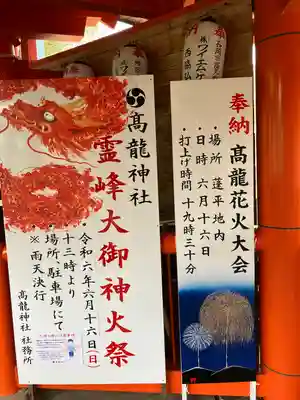 髙龍神社
霊峰大御神火祭
・令和六年六月十六日(日)
十三時より
・場所、駐車場にて
※雨天決行
高龍神社 社務所
奉納 高龍花火大会
・場所 蓬平地内
・日時 六月十六日
・打上げ時間 十九時三十分